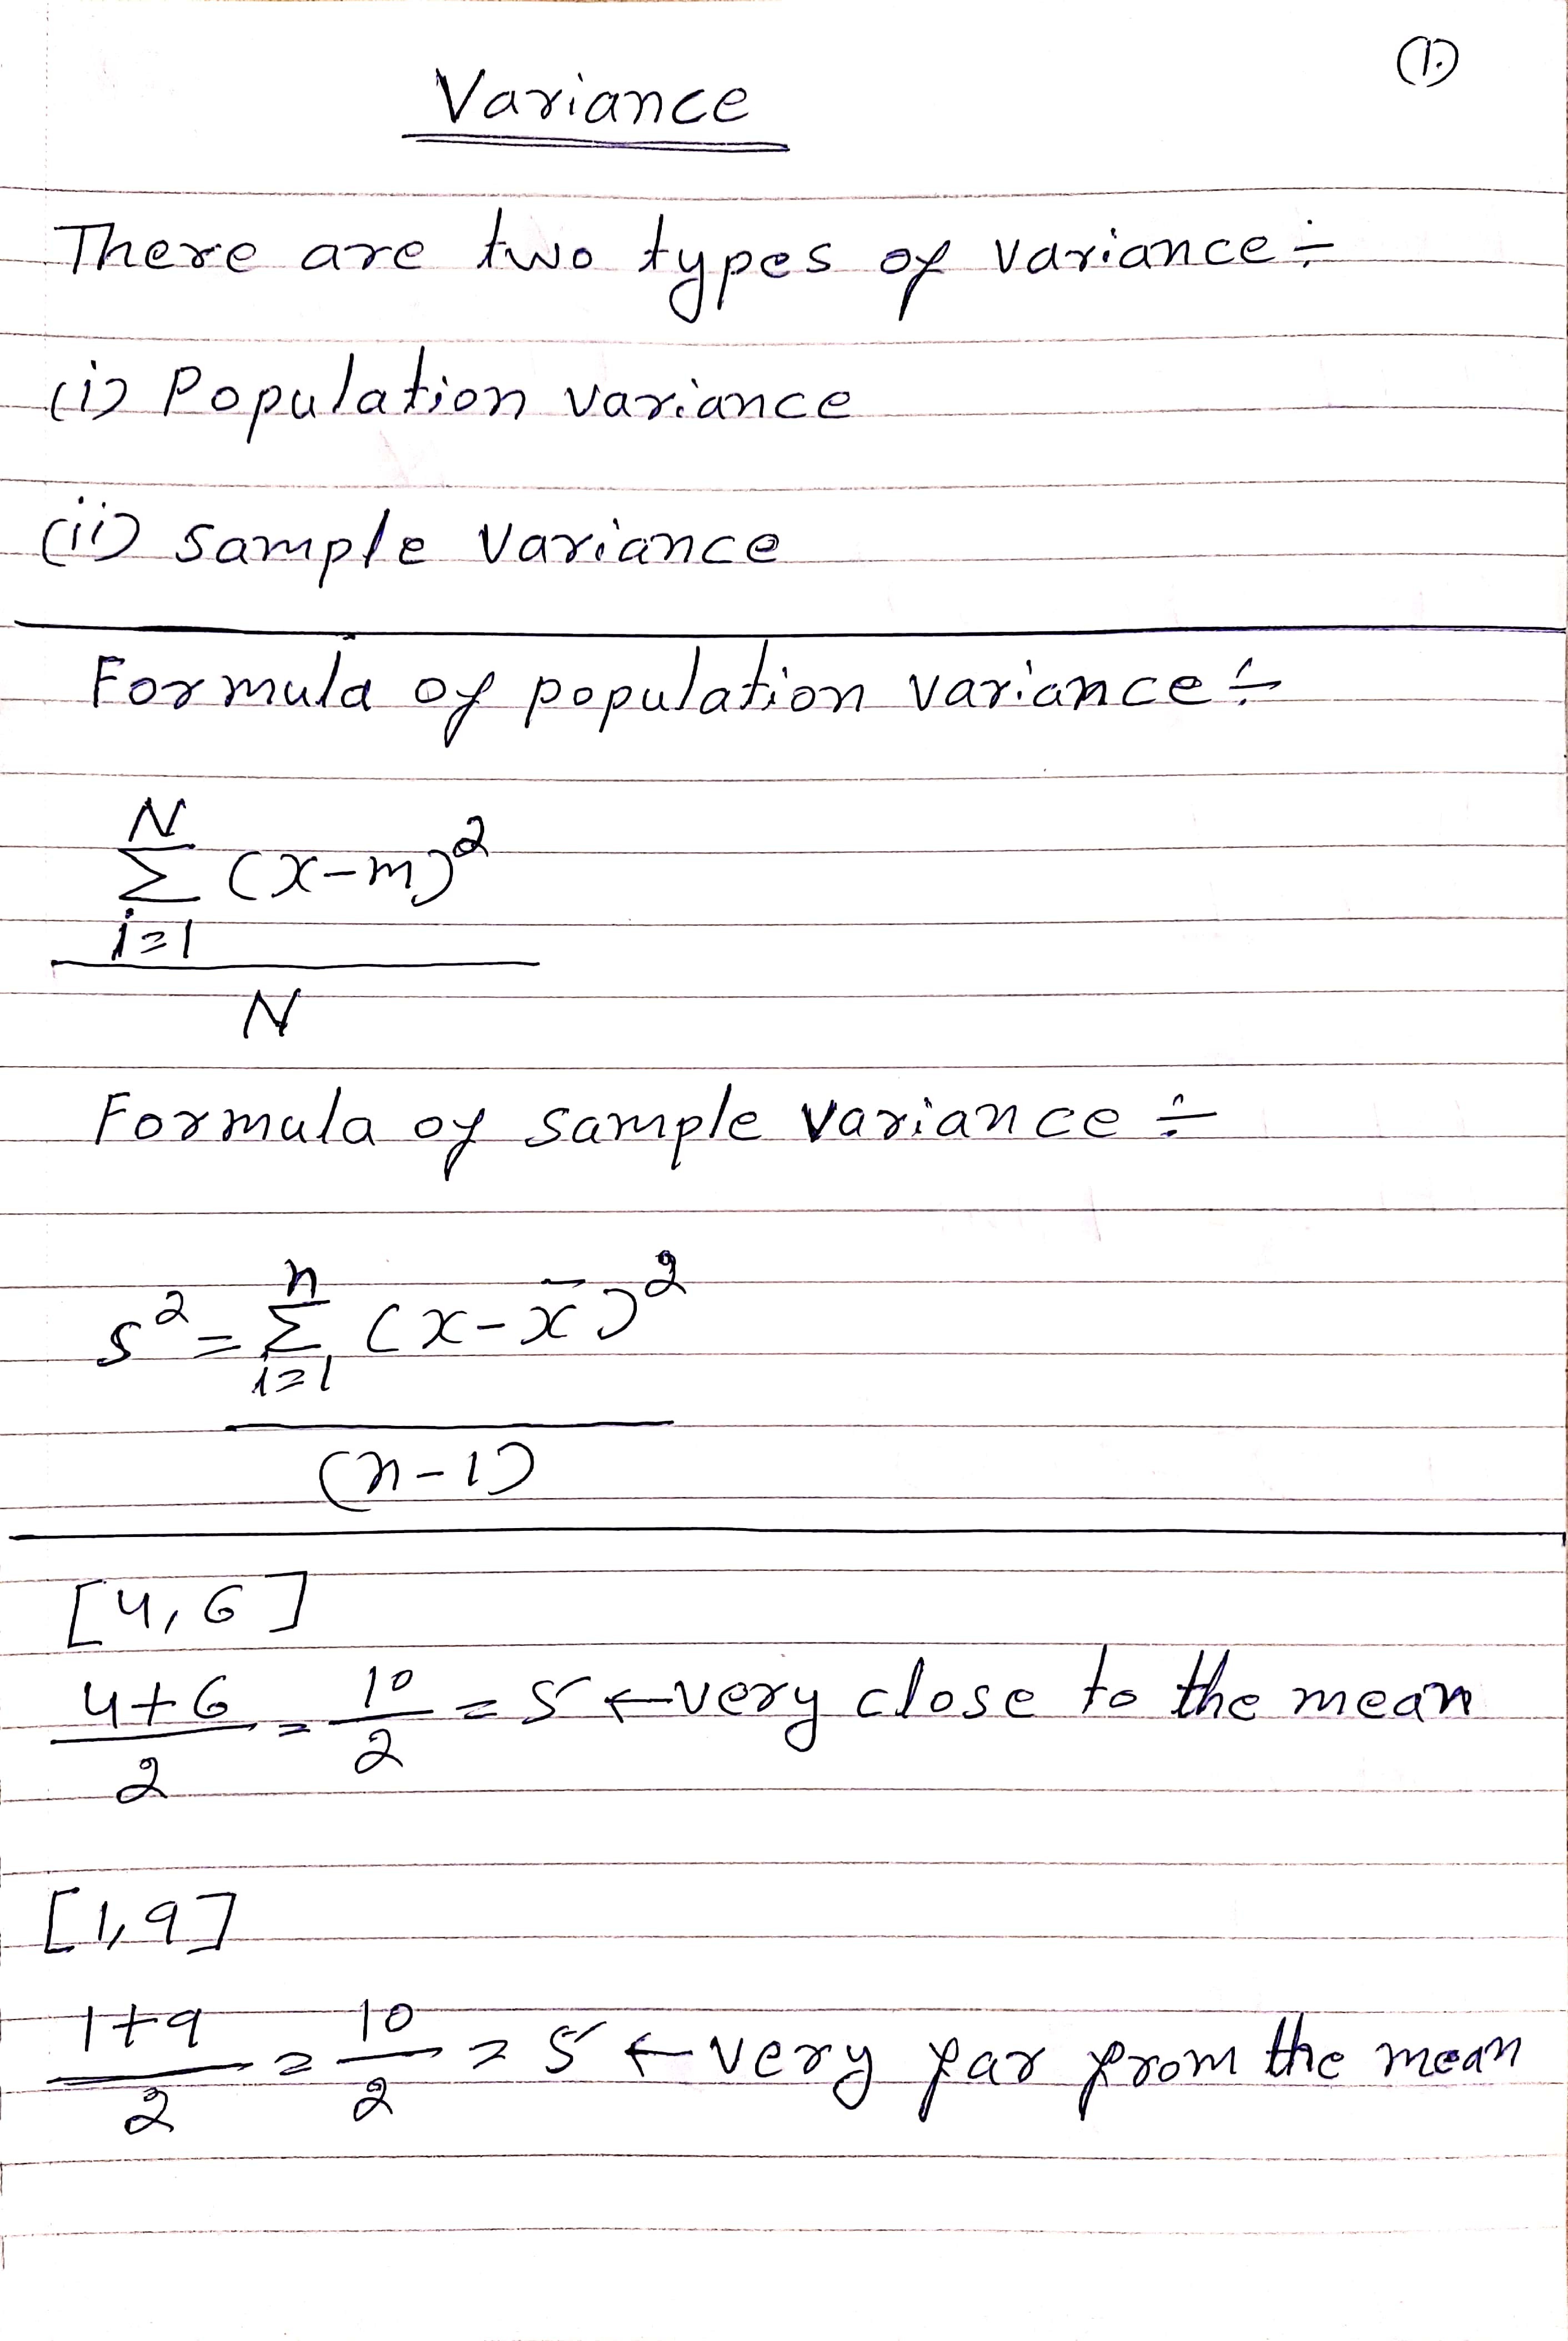 (1.)
Variance
There are two types of variance:-
(i) Population variance
(ii) sample variance
Formula of population variance:-
N
Σ (x-m)²
i=1
N
Formula of sample variance:-
n
s² = Σ (x-x̄)²
i=1
(n-1)
[4,6]
4+6/2 = 10/2 = 5 ← very close to the mean
[1,9]
1+9/2 = 10/2 = 5 ← very far from the mean